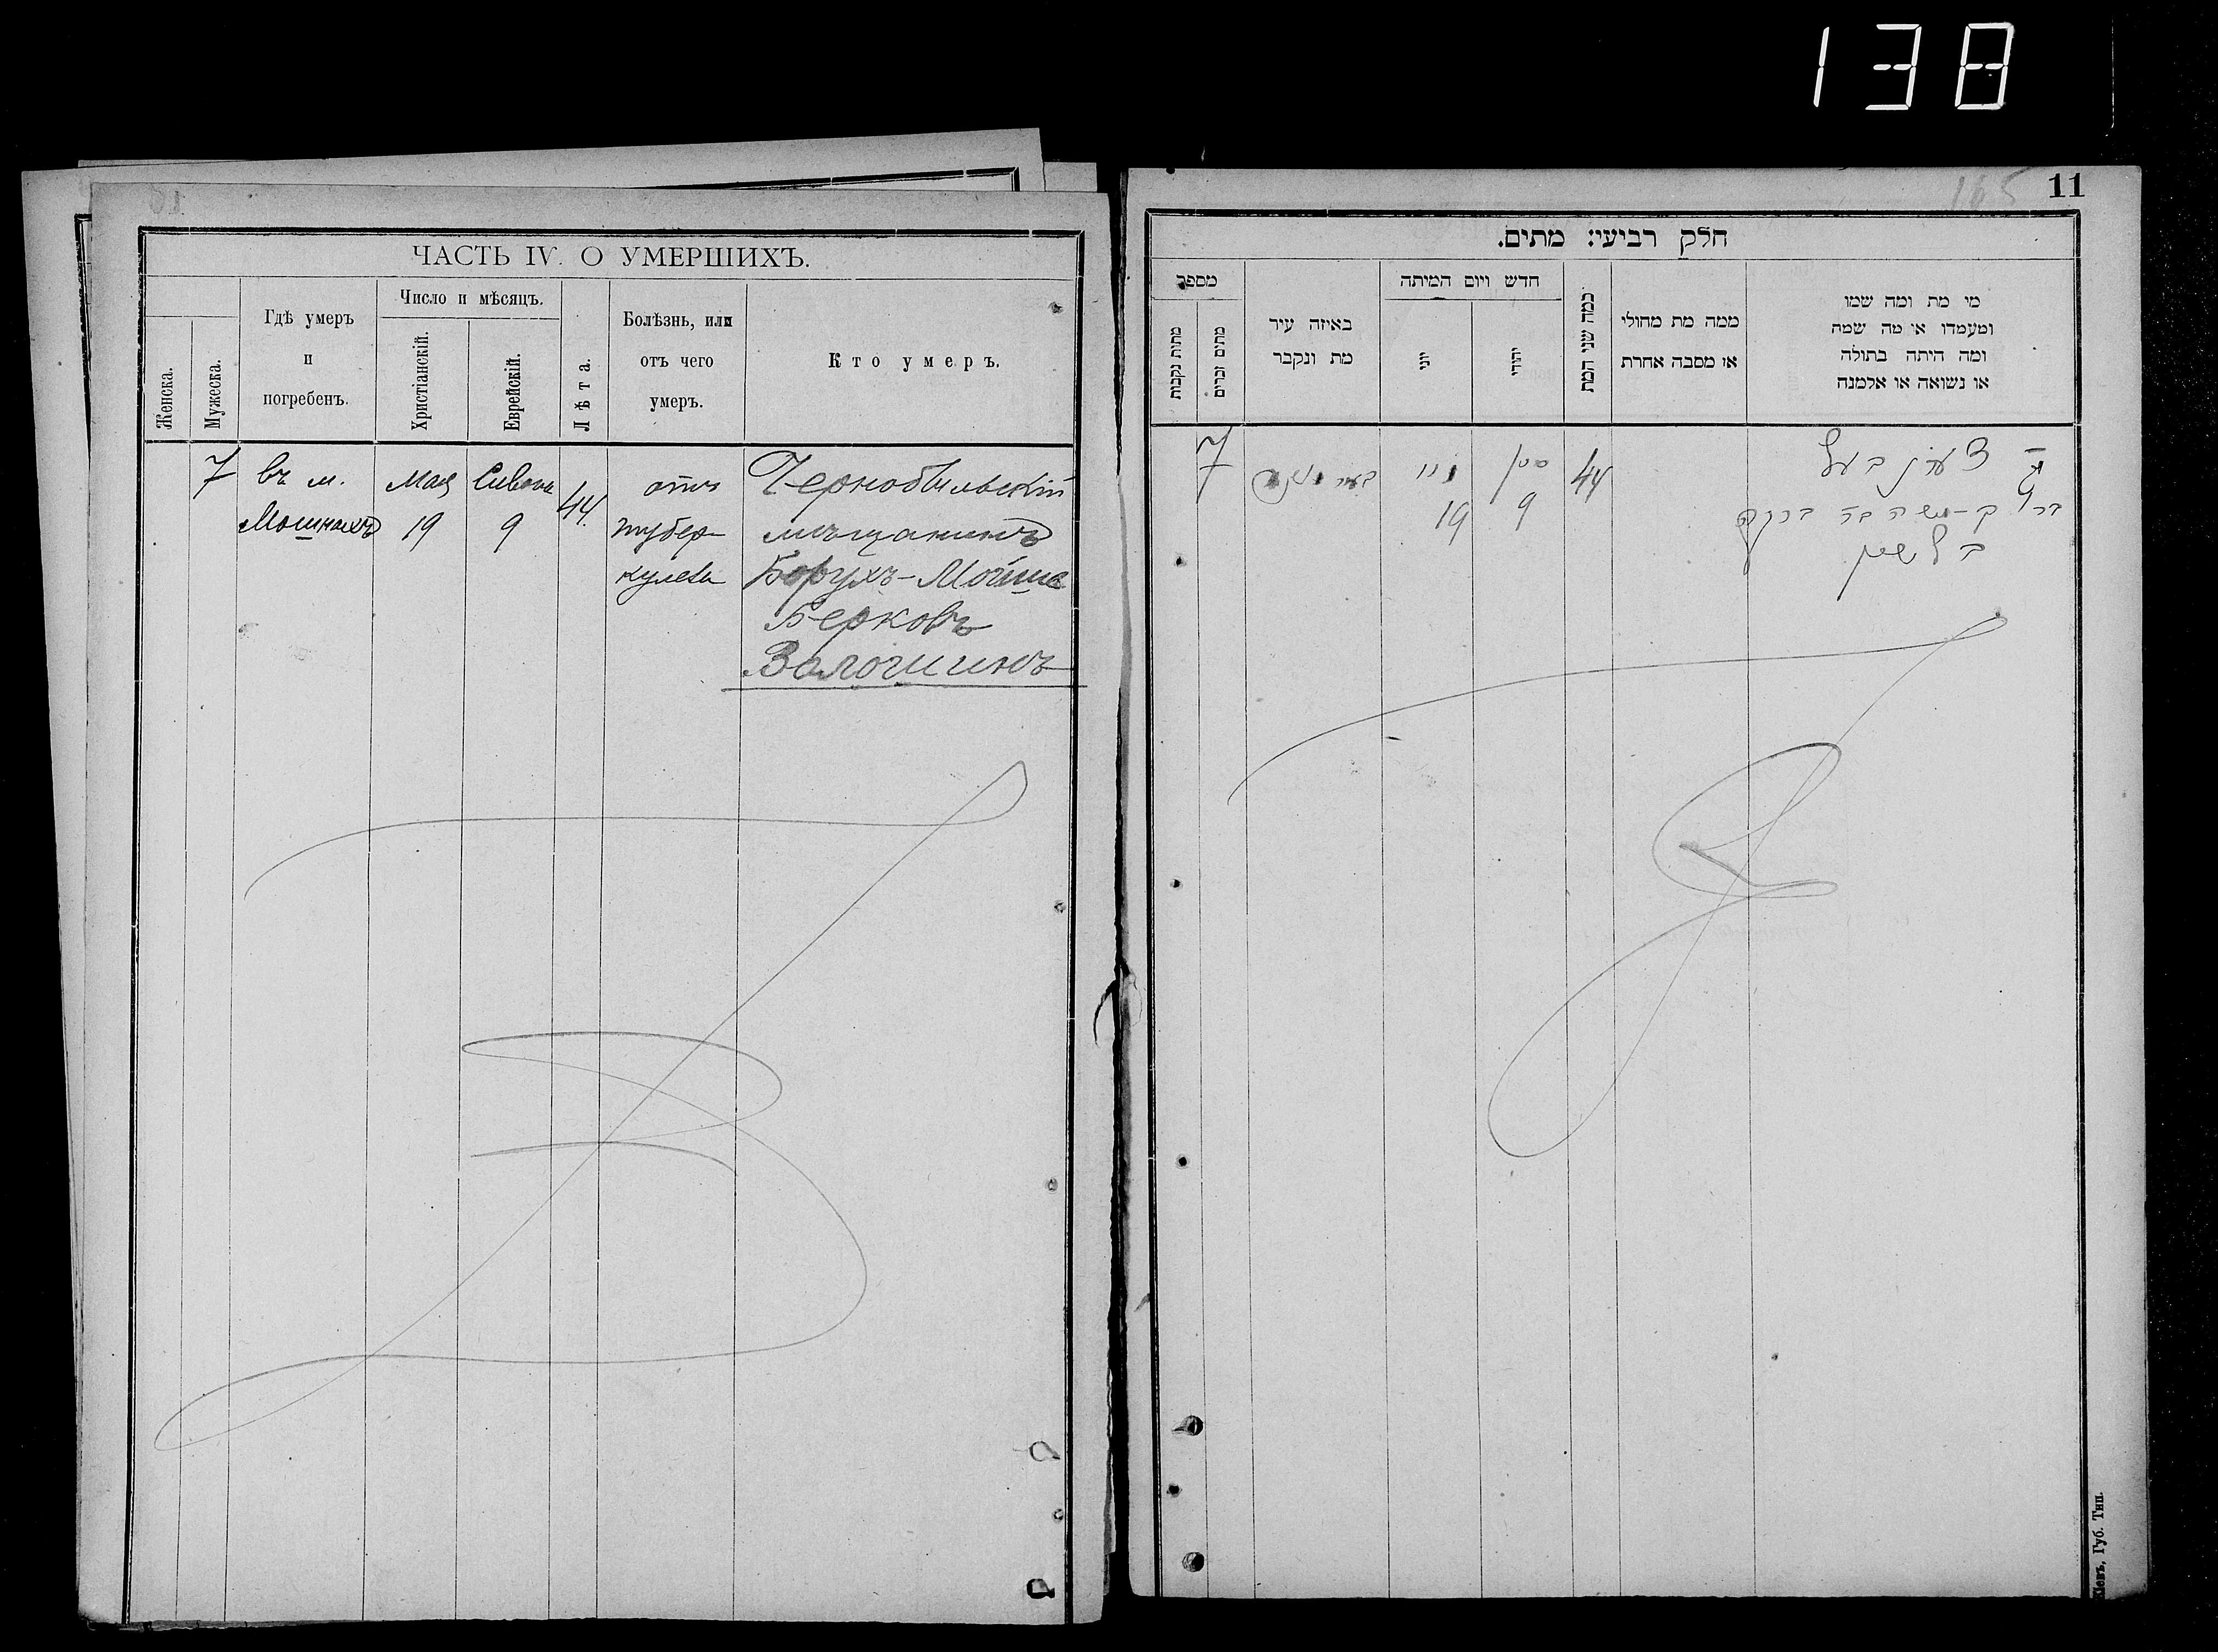 138
ЧАСТЬ IV. О УМЕРШИХЪ.
Женска.
Мужеска.
Гдѣ умеръ
и
погребенъ.
Число и мѣсяцъ.
Христіанскій.
Еврейскій.
Лѣта.
Болѣзнь, или
отъ чего
умеръ.
Кто умеръ.
7 въ м. Мая Сивона 44. отъ Чернобыльскій
Мошнахъ 19 9 тубер- мѣщанинъ
кулеза Борухъ-Мойше
Берковъ
Волошинъ
165
11
חלק רביעי: מתים.
מספר
מתות נקבות
מתים זכרים
באיזה עיר
מת ונקבר
חדש ויום המיתה
יוני
יהודי
כמה שני המת
ממה מת מחולי
או מסבה אחרת
מי מת ומה שמו
ומעמדו או מה שמה
ומה היתה בתולה
או נשואה או אלמנה
7 סיון 44
19 9
Кіевъ, Губ. Тип.